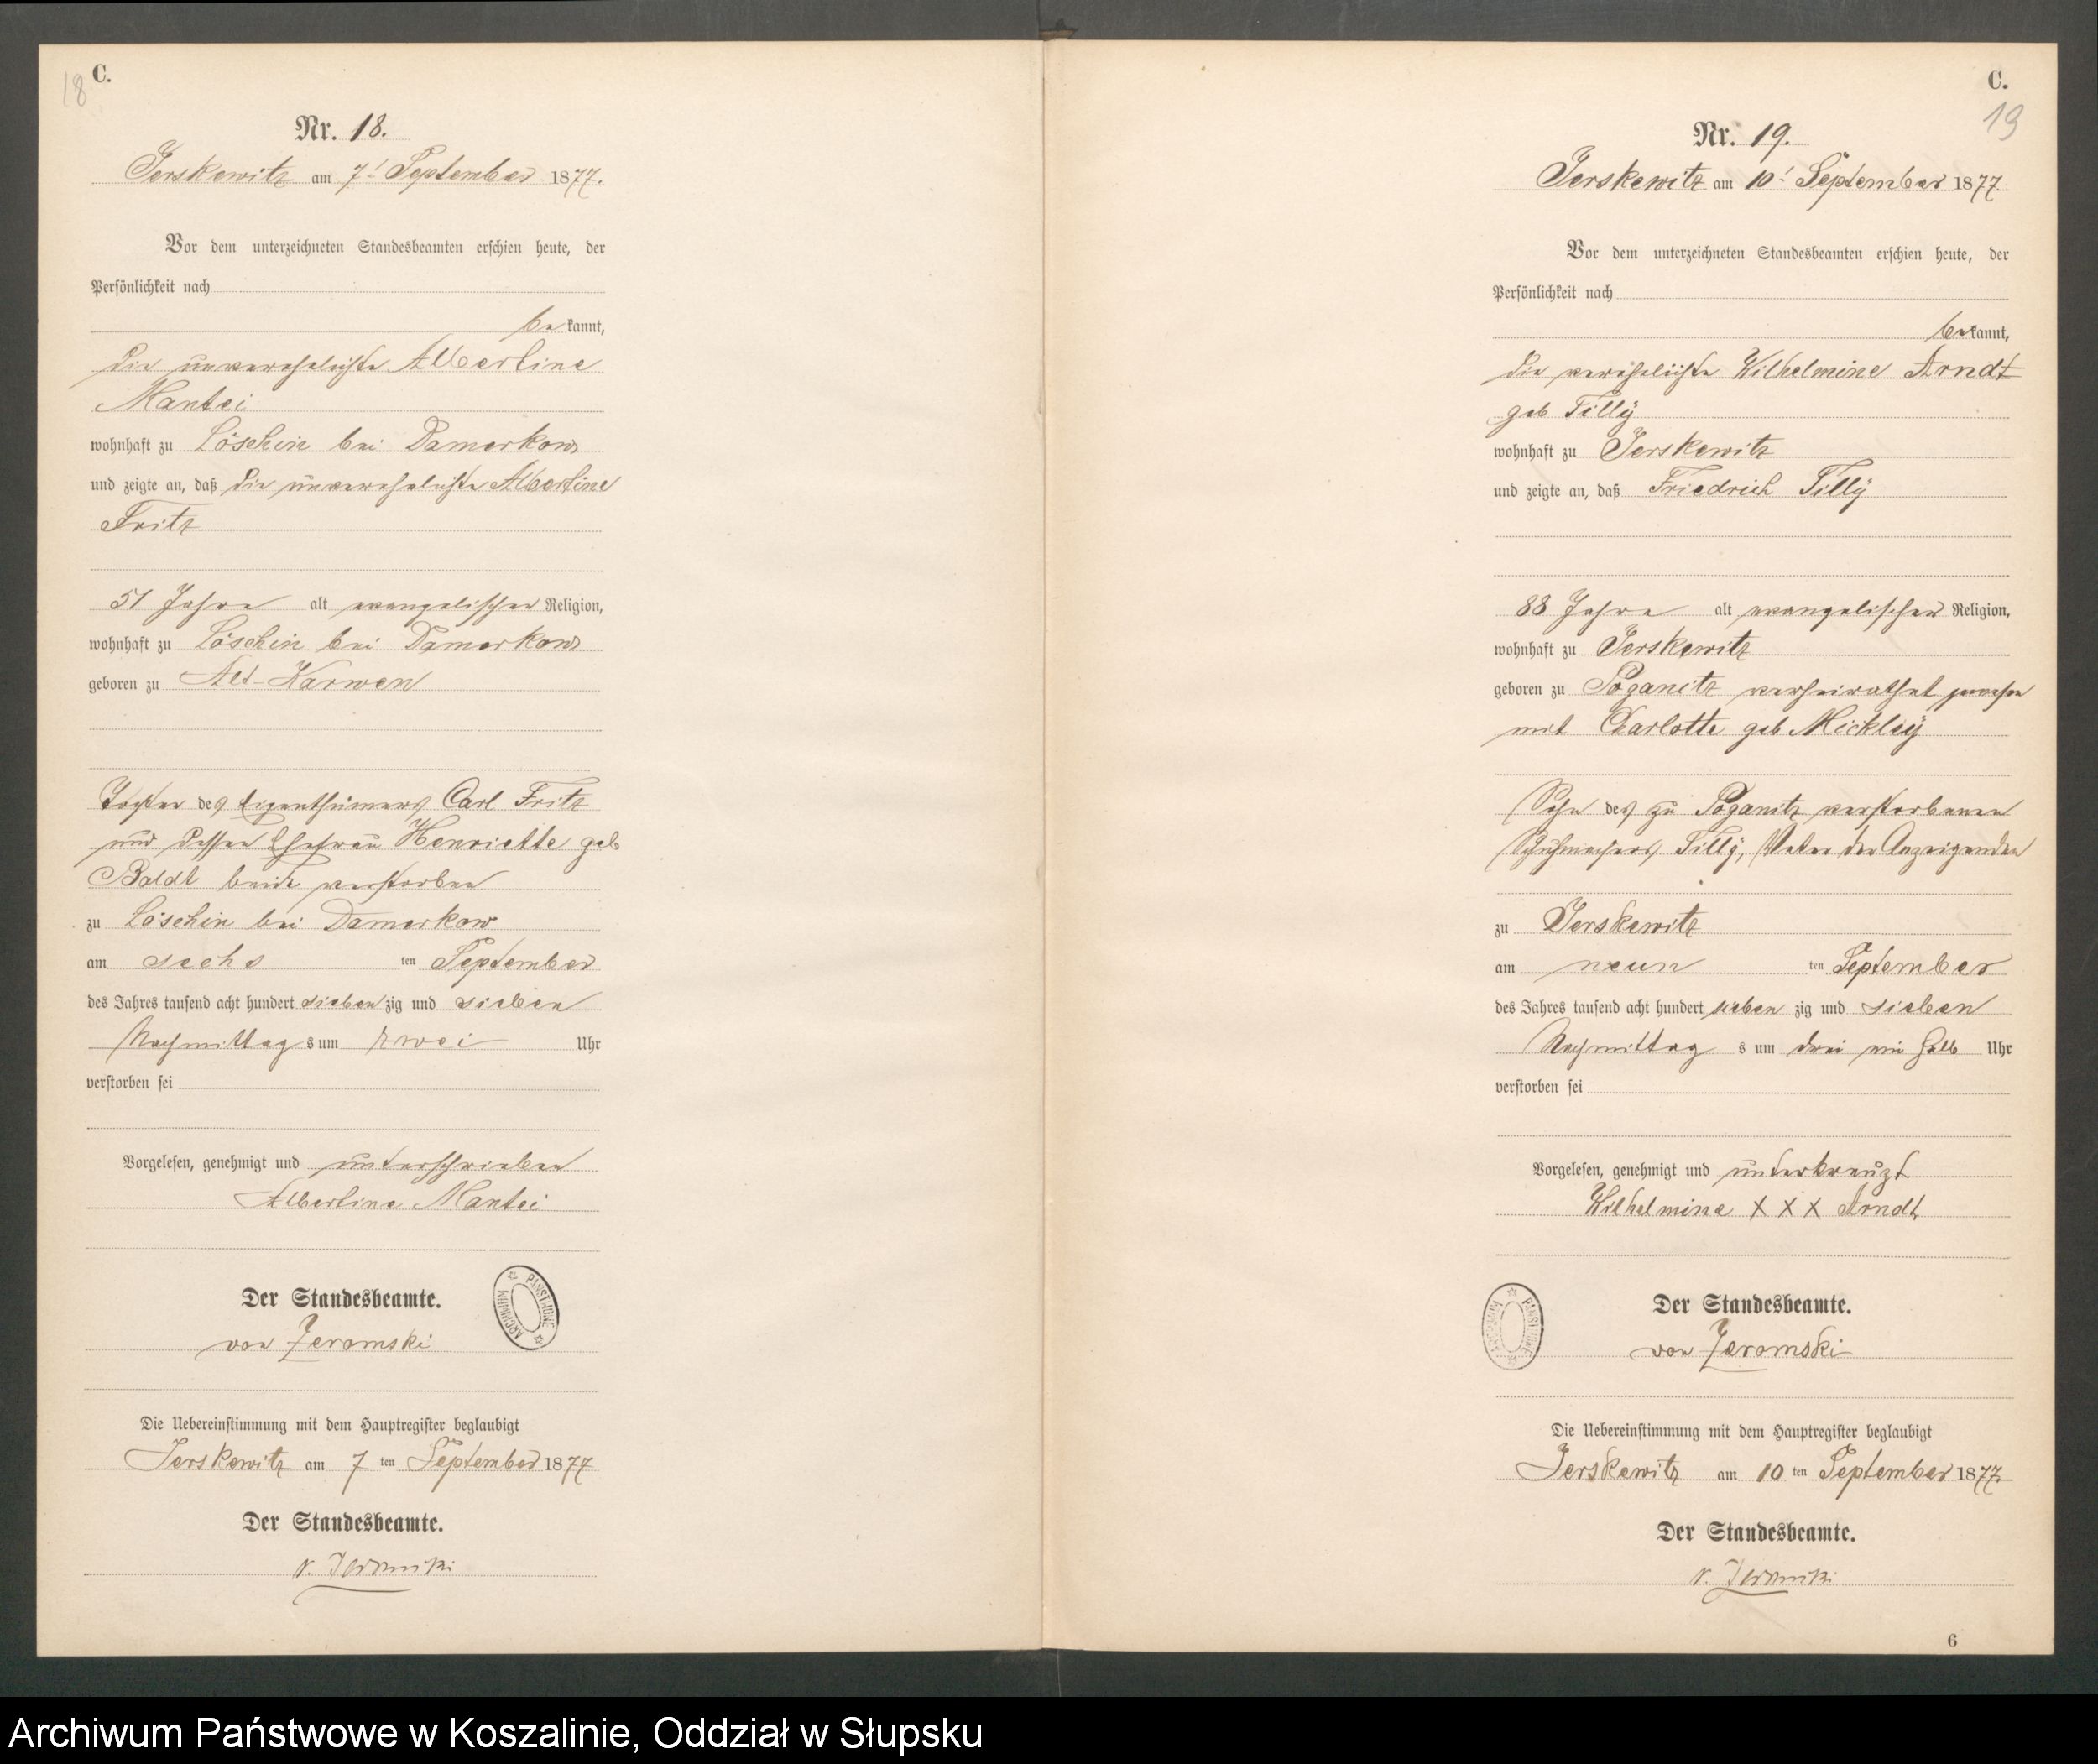 18
C.
Nr. 18.
Jerskewitz am 7t September 1877.
Vor dem unterzeichneten Standesbeamten erschien heute, der
Persönlichkeit nach
bekannt,
die unverehelichte Albertine
Mantei
wohnhaft zu Löschin bei Damerkow
und zeigte an, daß die unverehelichte Albertine
Fritz
51 Jahre alt evangelischer Religion,
wohnhaft zu Löschin bei Damerkow
geboren zu Alt-Karwen
Tochter des Eigenthümers Carl Fritz
und dessen Ehefrau Henriette geb
Boldt beide verstorben
zu Löschin bei Damerkow
am sechs ten September
des Jahres tausend acht hundert siebenzig und sieben
Nachmittags um zwei Uhr
verstorben sei
Vorgelesen, genehmigt und unterschrieben
Albertine Mantei
Der Standesbeamte.
von Zeromski
ARCHIWUM PAŃSTWOWE
Die Uebereinstimmung mit dem Hauptregister beglaubigt
Jerskewitz am 7 ten September 1877
Der Standesbeamte.
v. Zeromski
C.
19
Nr. 19.
Jerskewitz am 10t September 1877.
Vor dem unterzeichneten Standesbeamten erschien heute, der
Persönlichkeit nach
bekannt,
die verehelichte Wilhelmine Arndt
geb Tilly
wohnhaft zu Jerskewitz
und zeigte an, daß Friedrich Tilly
88 Jahre alt evangelischer Religion,
wohnhaft zu Jerskewitz
geboren zu Poganitz verheirathet gewesen
mit Charlotte geb Mickley
Sohn des zu Poganitz verstorbenen
Schuhmachers Tilly, Vater der Anzeigenden
zu Jerskewitz
am neun ten September
des Jahres tausend acht hundert sieben zig und sieben
Nachmittag s um drei ein halb Uhr
verstorben sei
Vorgelesen, genehmigt und unterkreuzt
Wilhelmine X X X Arndt
Der Standesbeamte.
von Zeromski
Die Uebereinstimmung mit dem Hauptregister beglaubigt
Jerskewitz am 10 ten September 1877.
Der Standesbeamte.
v. Zeromski
6
Archiwum Państwowe w Koszalinie, Oddział w Słupsku